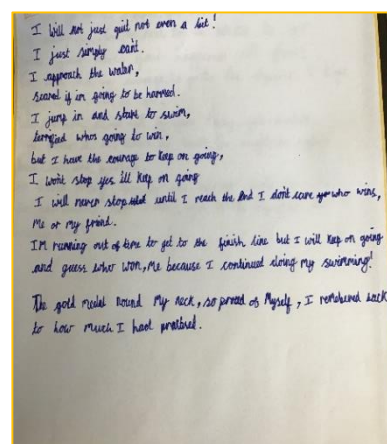 I will not just quit not even a bit!
I just simply can't.
I approach the water,
scared if im going to be harmed.
I jump in and start to swim,
terrified whos going to win,
but I have the courage to keep on going,
I won't stop yes ill keep on going
I will never stop until I reach the end I don't care who wins,
Me or my friend.
IM running out of time to get to the finish line but I will keep on going
and guess who won, Me because I continued doing my swimming!
The gold medal round My neck, so proud of Myself, I remebered back
to how much I had